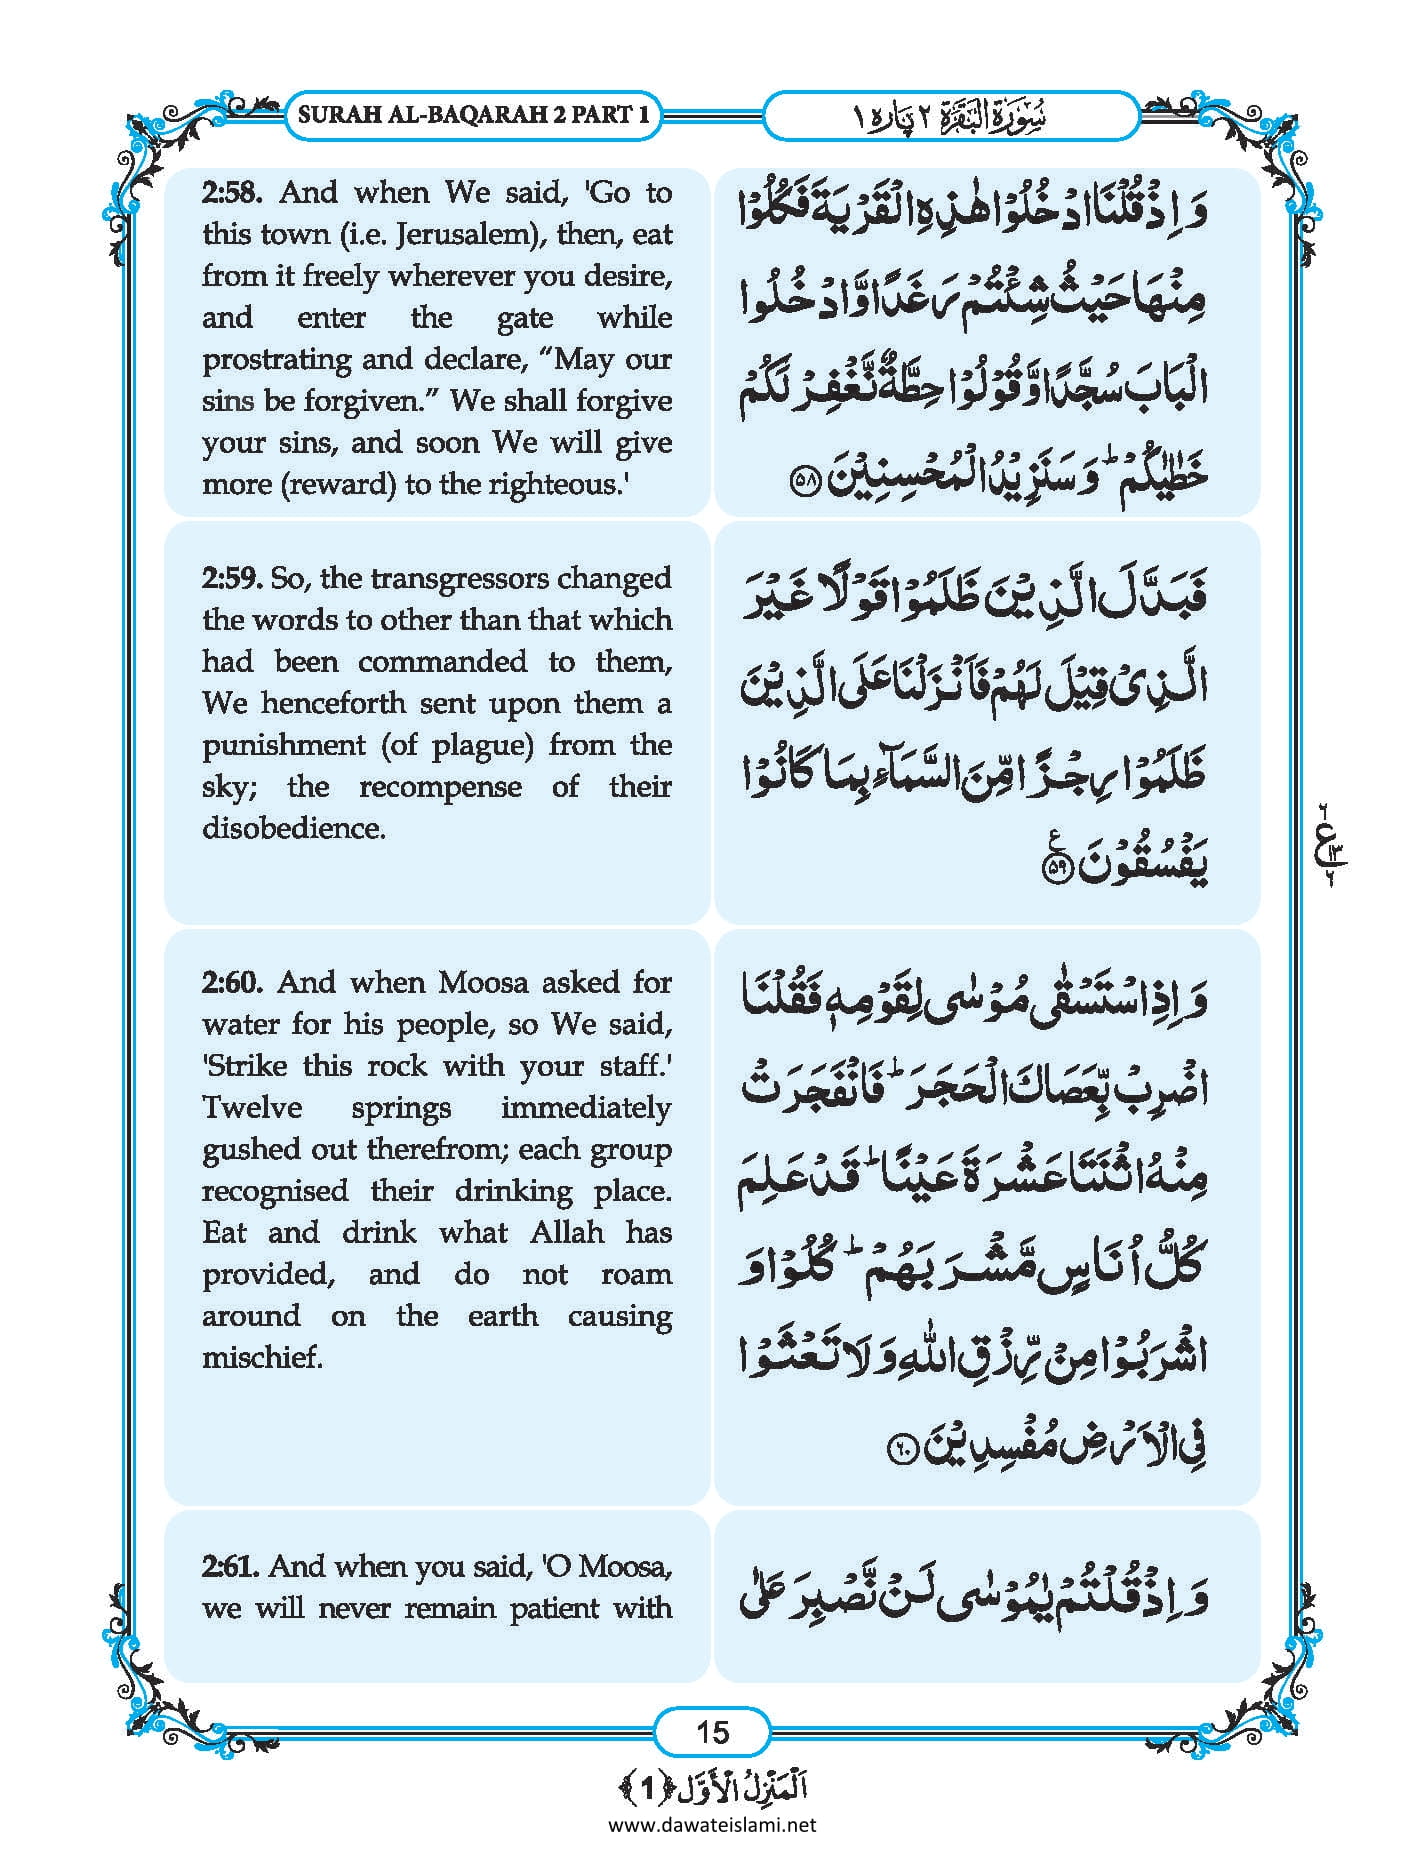 SURAH AL-BAQARAH 2 PART 1
سُوۡرَۃُ الۡبَقَرَۃِ ۲ پارہ ۱
2:58. And when We said, 'Go to
this town (i.e. Jerusalem), then, eat
from it freely wherever you desire,
and enter the gate while
prostrating and declare, “May our
sins be forgiven.” We shall forgive
your sins, and soon We will give
more (reward) to the righteous.'
وَ اِذۡ قُلۡنَا ادۡخُلُوۡا ہٰذِہِ الۡقَرۡیَۃَ فَکُلُوۡا
مِنۡہَا حَیۡثُ شِئۡتُمۡ رَغَدًا وَّ ادۡخُلُوا
الۡبَابَ سُجَّدًا وَّ قُوۡلُوۡا حِطَّۃٌ نَّغۡفِرۡ لَکُمۡ
خَطٰیٰکُمۡ ؕ وَ سَنَزِیۡدُ الۡمُحۡسِنِیۡنَ ﴿۵۸﴾
2:59. So, the transgressors changed
the words to other than that which
had been commanded to them,
We henceforth sent upon them a
punishment (of plague) from the
sky; the recompense of their
disobedience.
فَبَدَّلَ الَّذِیۡنَ ظَلَمُوۡا قَوۡلًا غَیۡرَ
الَّذِیۡ قِیۡلَ لَہُمۡ فَاَنۡزَلۡنَا عَلَی الَّذِیۡنَ
ظَلَمُوۡا رِجۡزًا مِّنَ السَّمَآءِ بِمَا کَانُوۡا
یَفۡسُقُوۡنَ ﴿۵۹﴾ ع
۶
ع ۱۳
۶
2:60. And when Moosa asked for
water for his people, so We said,
'Strike this rock with your staff.'
Twelve springs immediately
gushed out therefrom; each group
recognised their drinking place.
Eat and drink what Allah has
provided, and do not roam
around on the earth causing
mischief.
وَ اِذِ اسۡتَسۡقٰی مُوۡسٰی لِقَوۡمِہٖ فَقُلۡنَا
اضۡرِبۡ بِّعَصَاکَ الۡحَجَرَ ؕ فَانۡفَجَرَتۡ
مِنۡہُ اثۡنَتَا عَشۡرَۃَ عَیۡنًا ؕ قَدۡ عَلِمَ
کُلُّ اُنَاسٍ مَّشۡرَبَہُمۡ ؕ کُلُوۡا وَ
اشۡرَبُوۡا مِنۡ رِّزۡقِ اللّٰہِ وَ لَا تَعۡثَوۡا
فِی الۡاَرۡضِ مُفۡسِدِیۡنَ ﴿۶۰﴾
2:61. And when you said, 'O Moosa,
we will never remain patient with
وَ اِذۡ قُلۡتُمۡ یٰمُوۡسٰی لَنۡ نَّصۡبِرَ عَلٰی
15
اَلۡمَنۡزِلُ الۡاَوَّل ﴿1﴾
www.dawateislami.net